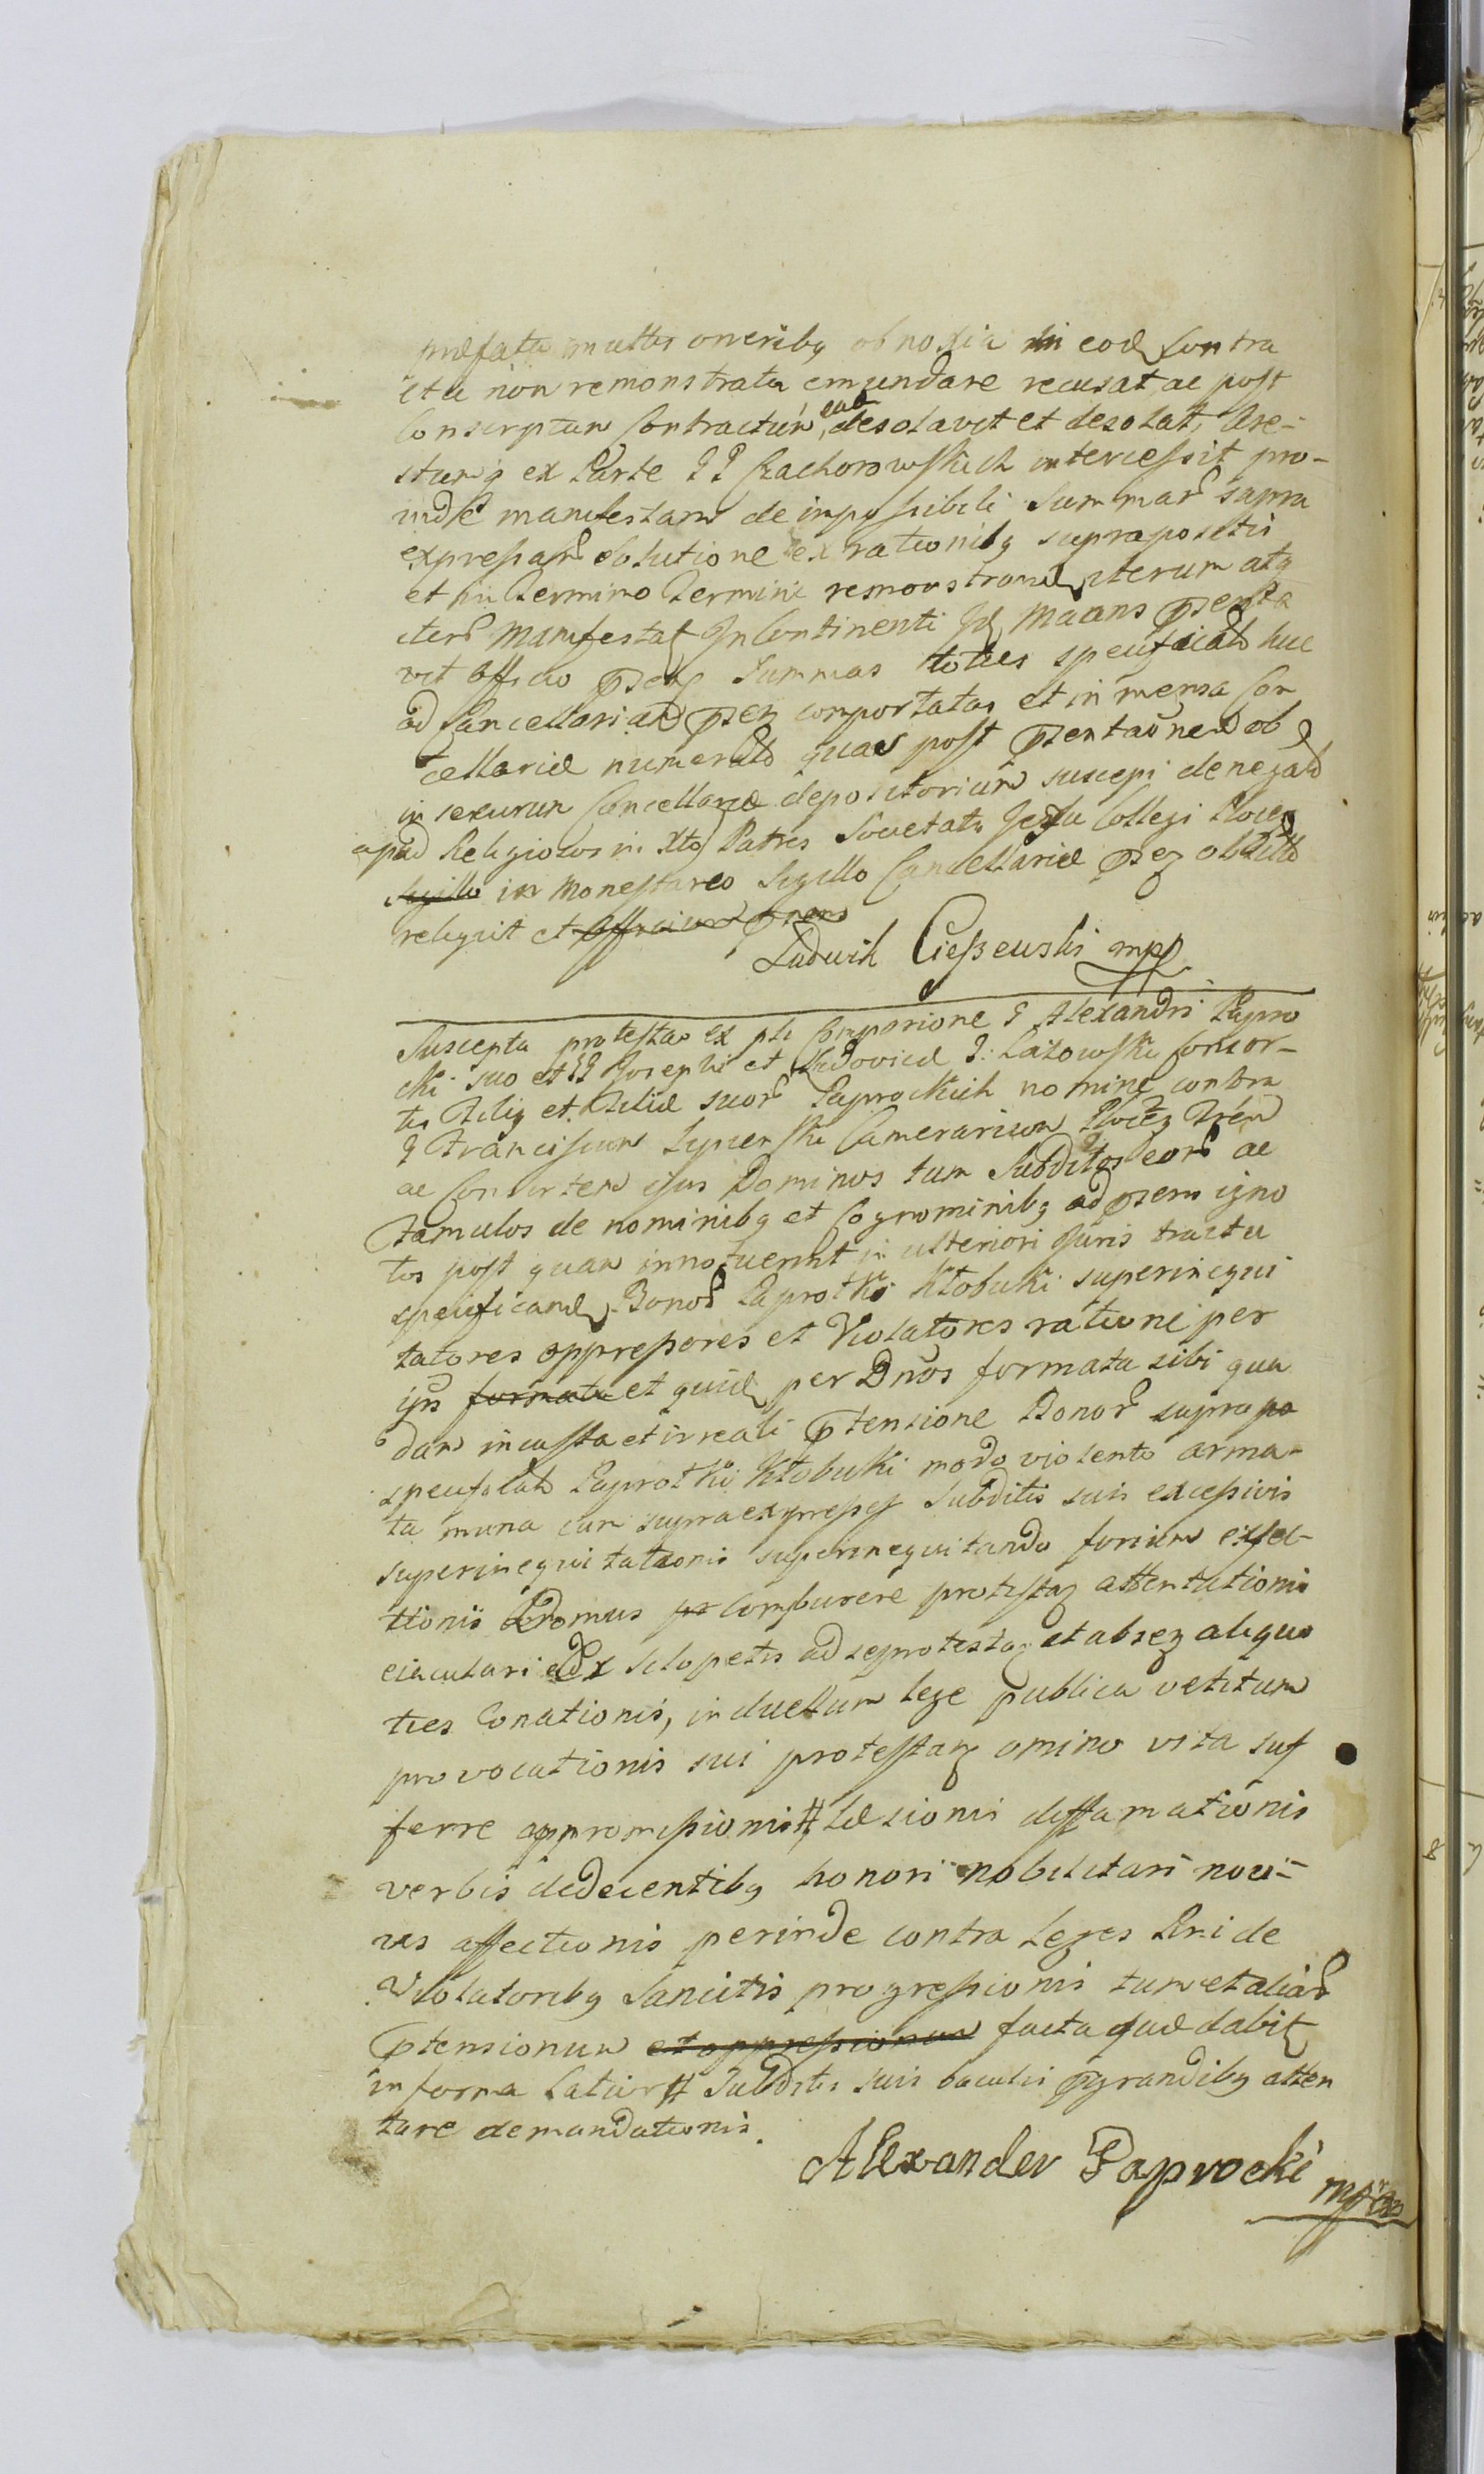 præfata multis oneribq obnoxia in eod Contra
ctu non remonstrata emundare recusat ac post
Conscriptum Contractum, ead desolavit et desolat, Are-
stumq ex Parte PP Czachorowskich intercessit pro-
inde manifestans de impossibili Summar supra
expressar Solutione ex rationibq supra positis
et in Termino Termini remonstrand iterum atq
iter Manifestat InContinenti Id Maans psenta
vit officio psenq Summas toties specificatas huc
ad Cancellariam psen comportatas et in mensa Can
cellariæ numeratas quas post psentaonem ob
in securum Cancellariæ depositorium suscepi denegatas
apud Religiosos in Xto Patres Societatis Jesu Collegi Plocen
Sigillo in Monestareo Sigillo Cancellariæ psen obsitto
reliquit et officium pnens
Ludwik Cieszewski mpp
Suscepta protestao ex pli Comparione G Alexandri Papro
cki suo et GG Josephi et Ludovicæ G: Lazowski Consor-
tis Filiq et Filiæ suor Paprockich nomine contra
G Franciscum Lipienski Camerarium Plocen Tren
ac Consortem ejus Dominos tum Subditos eor ac
Famulos de nominibq et Cognominibq ad psens igno
tos post quam innotuerint in ulteriori Juris tractu
specificand Bonor Paprotki Kłobuki superinequi
tatores oppressores et Violatores ratione per
ips formata et quid per Dnos formata sibi qua
dam incusta et irreali ptensione Bonor supra po
specifatab Paprotki Kłobuki modo violento arma-
ta manu cum supraexpress Subditis suis excessivis
superinequitationis superinequitando forium exfec-
tionis Domus Comburere protestan attentationis
eiaculari Ex Sclopetis ad seprotestan et absen aliquo
ties Conationis, in duellum lege publica vetitum
provocationis sui protestan omino vita suf
ferre appromissionis # Læsionis deffamationis
verbis dedecentibq honori nobilitari noci-
vis affectionis perinde contra Leges Rni de
Violatoribq Sancitis progressionis tum et aliar
ptensionum et oppressionum facta quæ dabit
in forma Latiori # Subditis suis baculis pgrandibq atten
tare demandationis.
Alexander Paprocki mpp